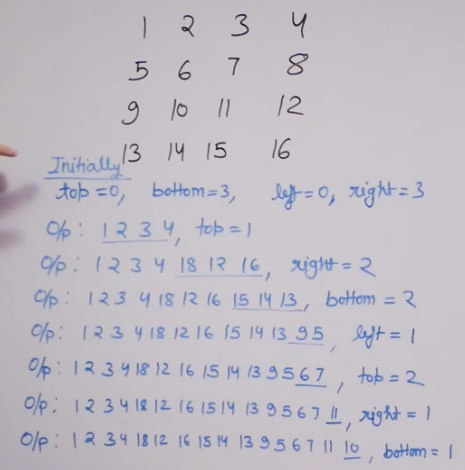 1 2 3 4
5 6 7 8
9 10 11 12
13 14 15 16
Initially
top=0, bottom=3, left=0, right=3
O/p: 1 2 3 4, top=1
O/p: 1 2 3 4 18 12 16, right=2
O/p: 1 2 3 4 18 12 16 15 14 13, bottom=2
O/p: 1 2 3 4 18 12 16 15 14 13 9 5, left=1
O/p: 1 2 3 4 18 12 16 15 14 13 9 5 6 7, top=2
O/p: 1 2 3 4 18 12 16 15 14 13 9 5 6 7 11, right=1
O/p: 1 2 3 4 18 12 16 15 14 13 9 5 6 7 11 10, bottom=1